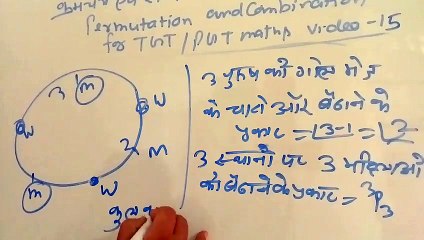 Permutation and Combination
for TGT / PGT maths video - 15
3 पुरुष को गोल मेज
के चारो ओर बैठाने के
प्रकार = ⌊3-1 = ⌊2
3 स्थानो पर 3 महिलाओ
को बैठाने के प्रकार = ³P₃
3 m
W
W
2 M
m
W
कुल